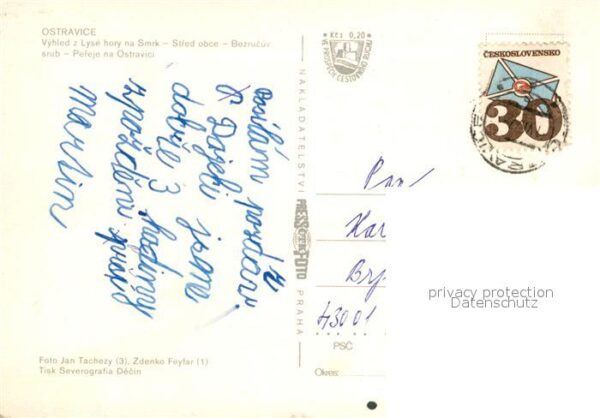 OSTRAVICE
Výhled z Lysé hory na Smrk – Střed obce – Bezručův
srub – Peřeje na Ostravici
posílám pozdrav z
Dojeli jsme
dobře 3 hodiny
zpoždění
martin
Foto Jan Tachezy (3), Zdenko Feyfar (1)
Tisk Severografia Děčín
NAKLADATELSTVÍ
PRESSFOTO
PRAHA
Kčs 0,20
VE PROSPĚCH CESTOVNÍHO RUCHU
ČESKOSLOVENSKO
30
Pan
Kar
43001
PSČ
Okres:
privacy protection
Datenschutz